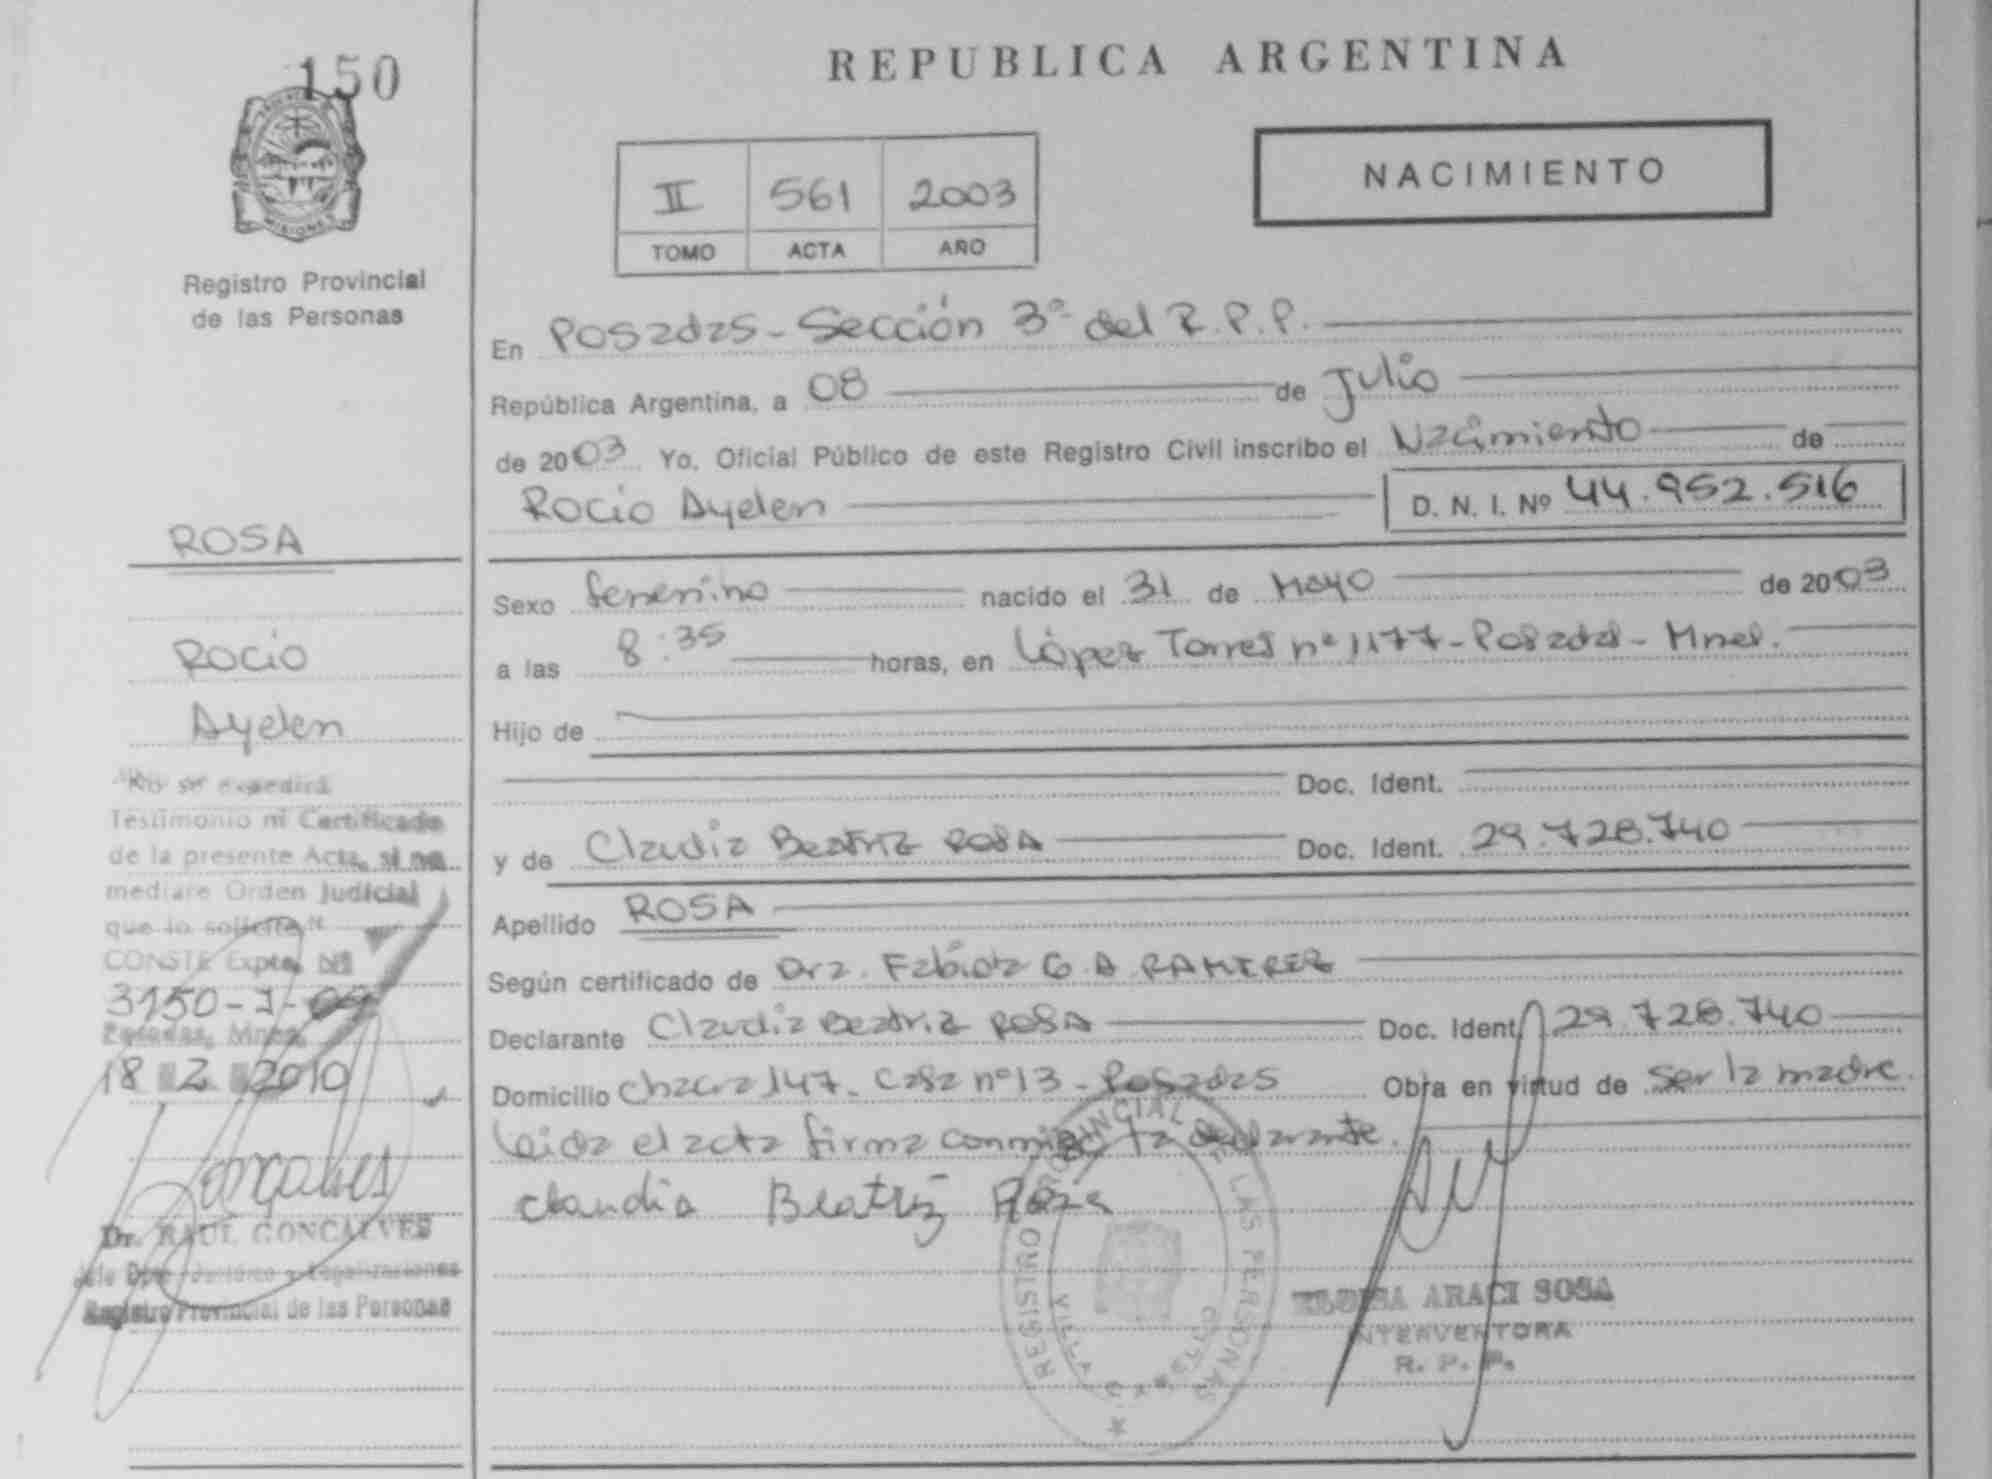 150
MISIONES
Registro Provincial
de las Personas
ROSA
Rocio
Ayelen
"No se expedirá
Testimonio ni Certificado
de la presente Acta, si no
mediare Orden Judicial
que lo solicite"
CONSTE Expte. Nº
3150-
Posadas, Mnes.
18 2 2010
Goncalves
Dr. RAUL GONCALVES
Jefe Dpto. Jurídico y Legalizaciones
Registro Provincial de las Personas
REPUBLICA ARGENTINA
NACIMIENTO
II 561 2003
TOMO ACTA AÑO
En Posadas - Sección 3º del R.P.P.
República Argentina, a 08 de Julio
de 2003 Yo, Oficial Público de este Registro Civil inscribo el Nacimiento de
Rocio Ayelen D. N. I. Nº 44.952.516
Sexo femenino nacido el 31 de Mayo de 2003
a las 8:35 horas, en López Torres nº 1177 - Posadas - Mnes.
Hijo de
Doc. Ident.
y de Claudia Beatriz ROSA Doc. Ident. 29.728.740
Apellido ROSA
Según certificado de Dra. Fabiola G. A. RAMIREZ
Declarante Claudia Beatriz ROSA Doc. Ident. 29.728.740
Domicilio Chacra 147 - Casa nº 13 - Posadas Obra en virtud de Ser la madre.
Leida el acta firma conmigo la declarante.
Claudia Beatriz Rosa
REGISTRO PROVINCIAL DE LAS PERSONAS
VILLA
ELOISA ARACI SOSA
INTERVENTORA
R. P. P.